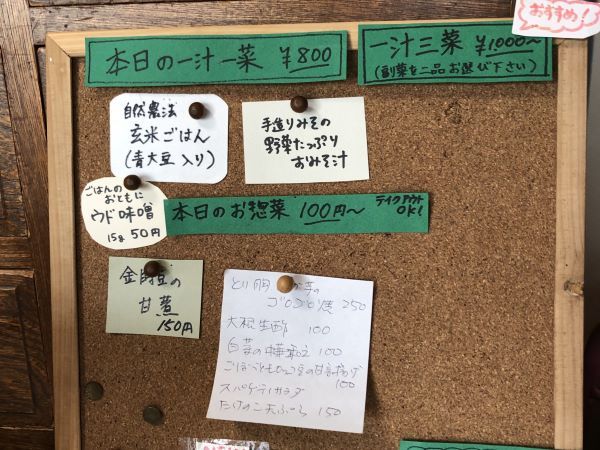 おすすめ!
本日の一汁一菜 ¥800
一汁三菜 ¥1000〜
(副菜を二品お選び下さい)
自然農法
玄米ごはん
(青大豆入り)
手造りみその
野菜たっぷり
おみそ汁
ごはんの
おともに
ウド味噌
15g 50円
本日のお惣菜 100円〜
テイクアウト
OK!
金時豆の
甘煮
150円
とり肉
芋の
ゴロゴロ焼 250
大根生酢 100
白菜の中華和え 100
100
スパゲティサラダ
たけのこ天ぷら 150